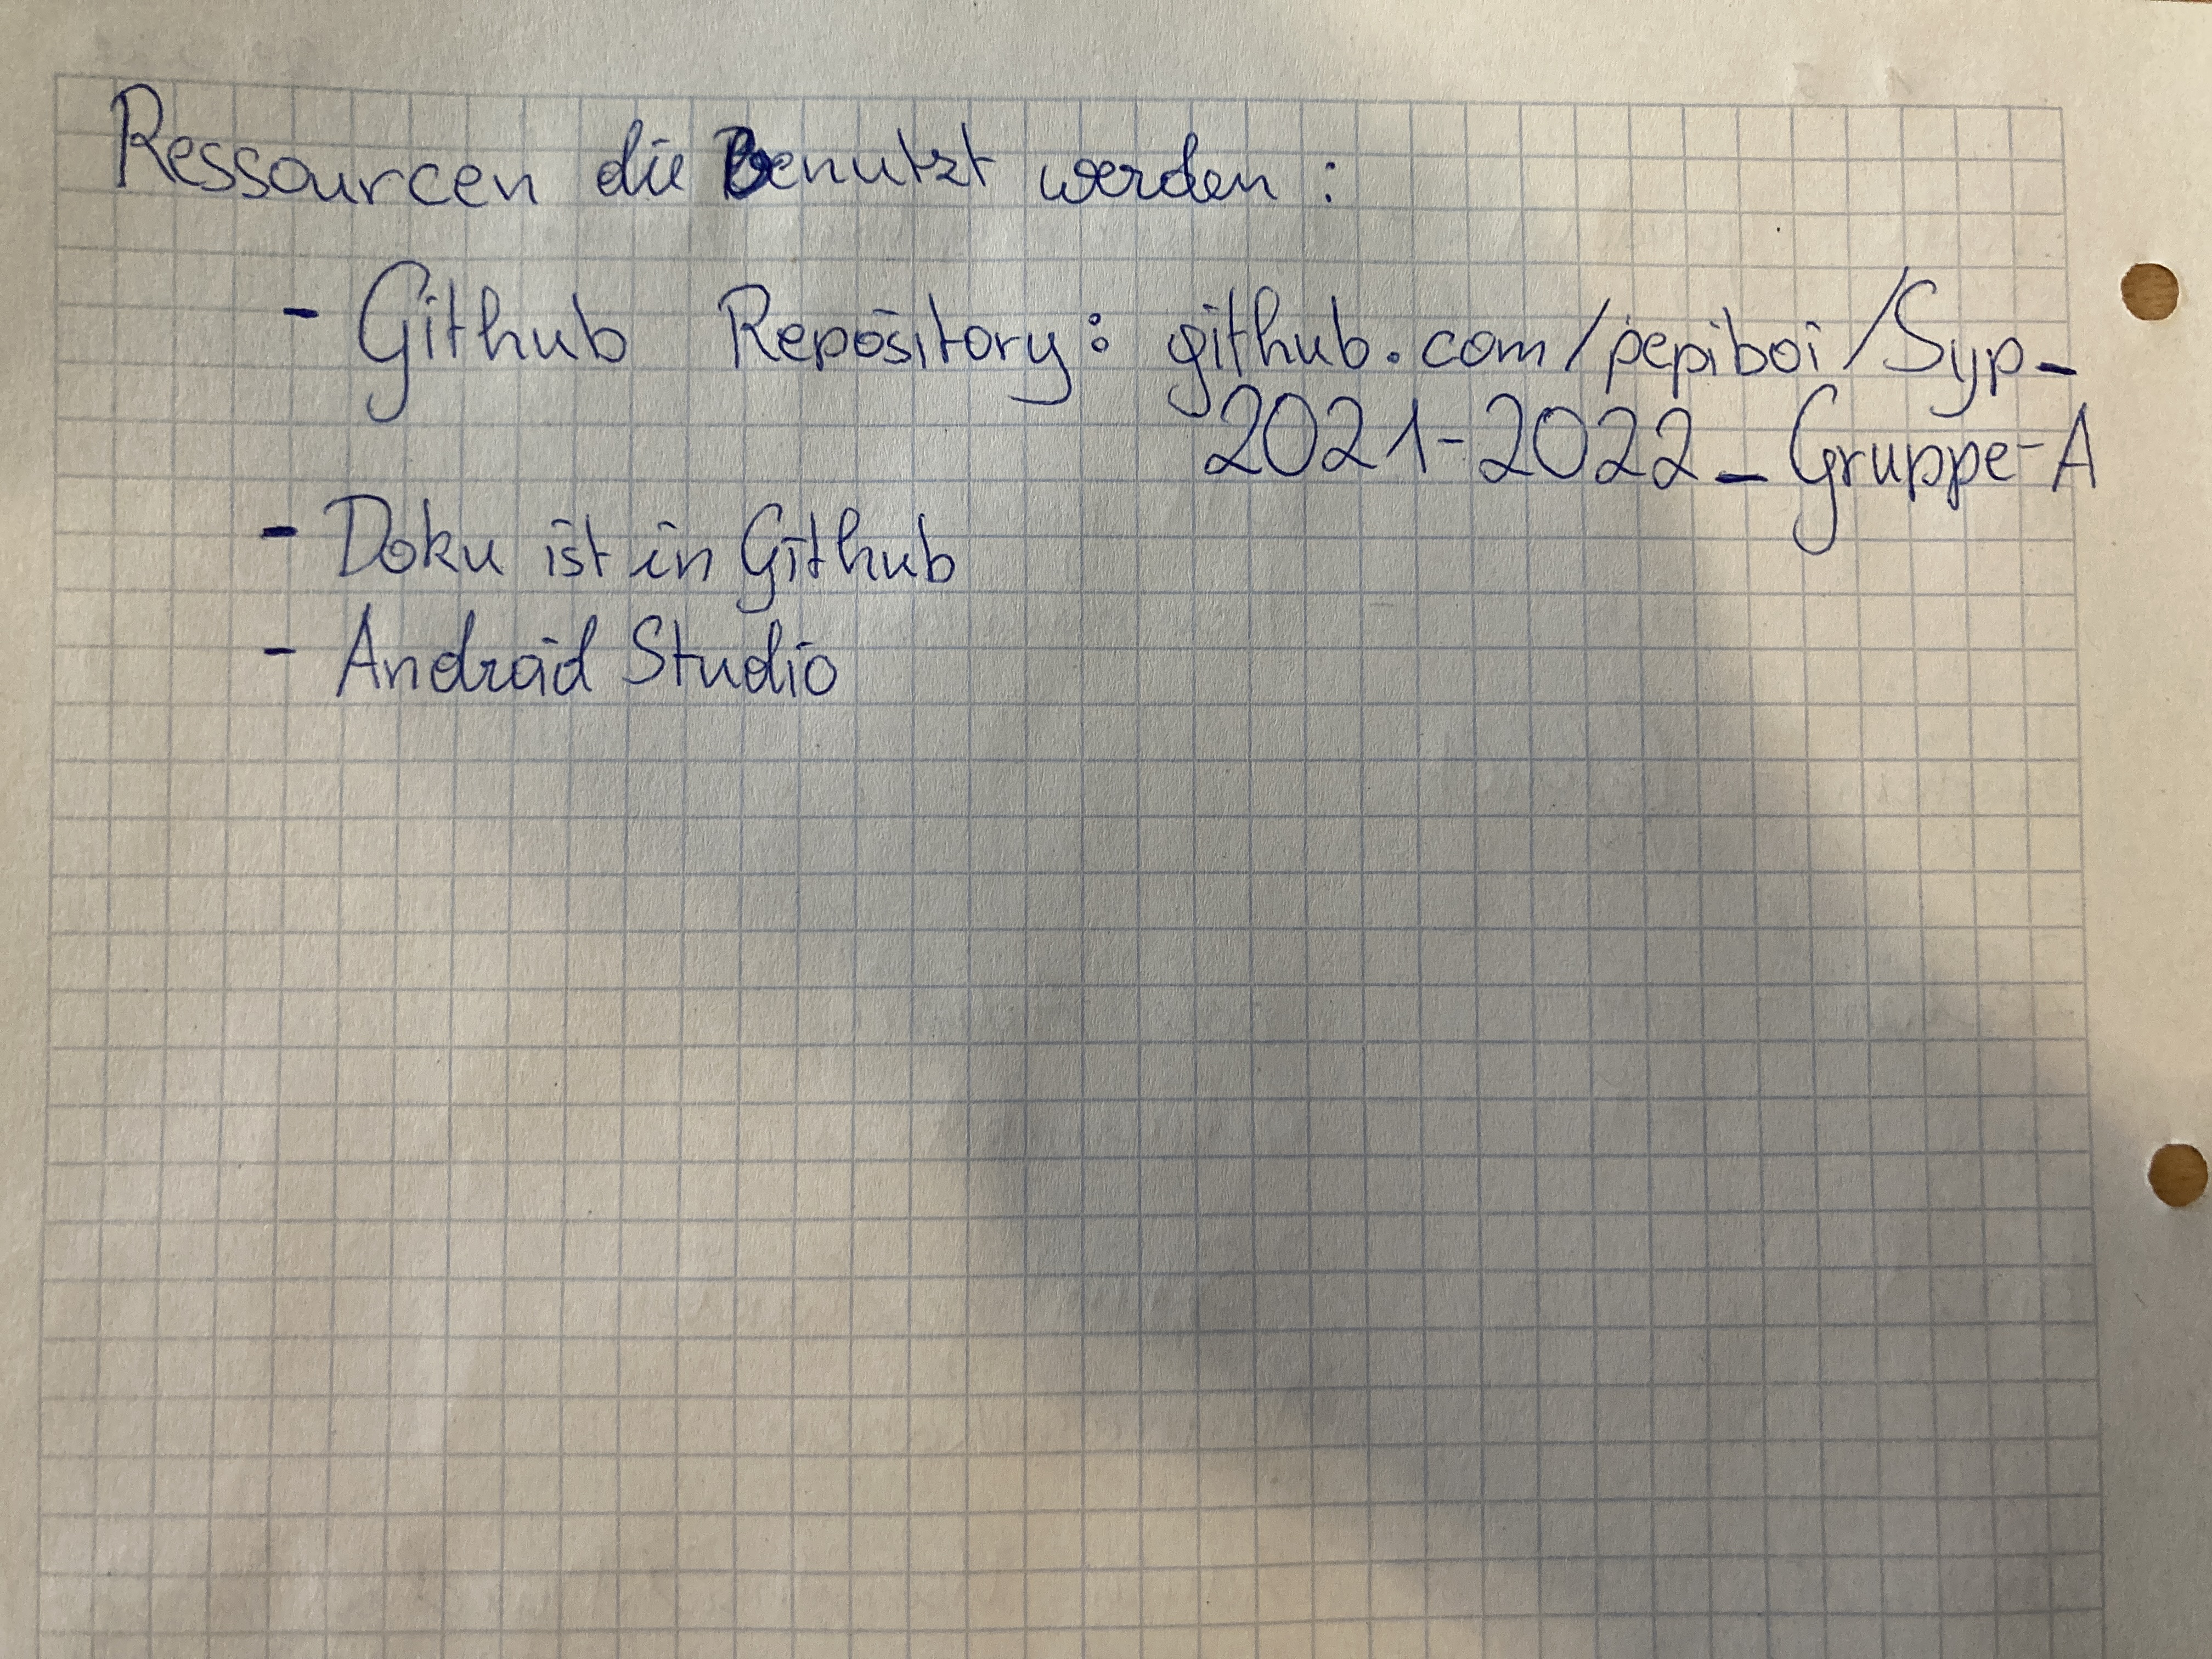 Ressourcen die benutzt werden:
- Github Repository: github.com/pepiboi/Syp-
2021-2022-Gruppe-A
- Doku ist in Github
- Android Studio